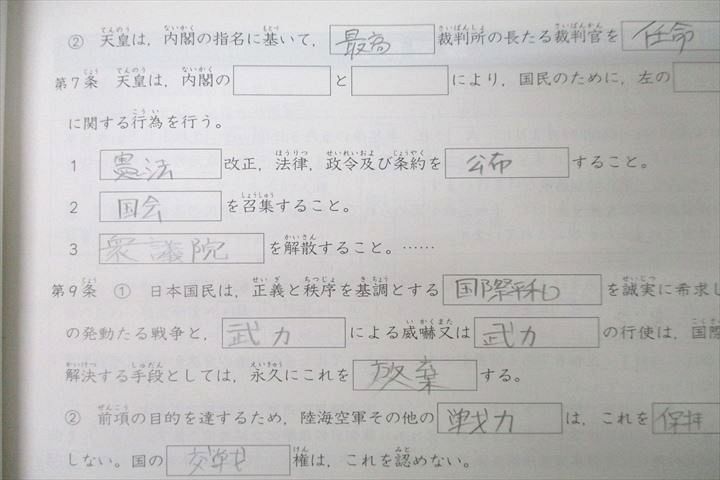 ② 天皇は，内閣の指名に基いて，最高裁判所の長たる裁判官を任命
第7条 天皇は，内閣の と により，国民のために，左の
に関する行為を行う。
1 憲法改正，法律，政令及び条約を公布すること。
2 国会を召集すること。
3 衆議院を解散すること。……
第9条 ① 日本国民は，正義と秩序を基調とする国際平和を誠実に希求し
の発動たる戦争と，武力による威嚇又は武力の行使は，国際
解決する手段としては，永久にこれを放棄する。
② 前項の目的を達するため，陸海空軍その他の戦力は，これを保持
しない。国の交戦権は，これを認めない。